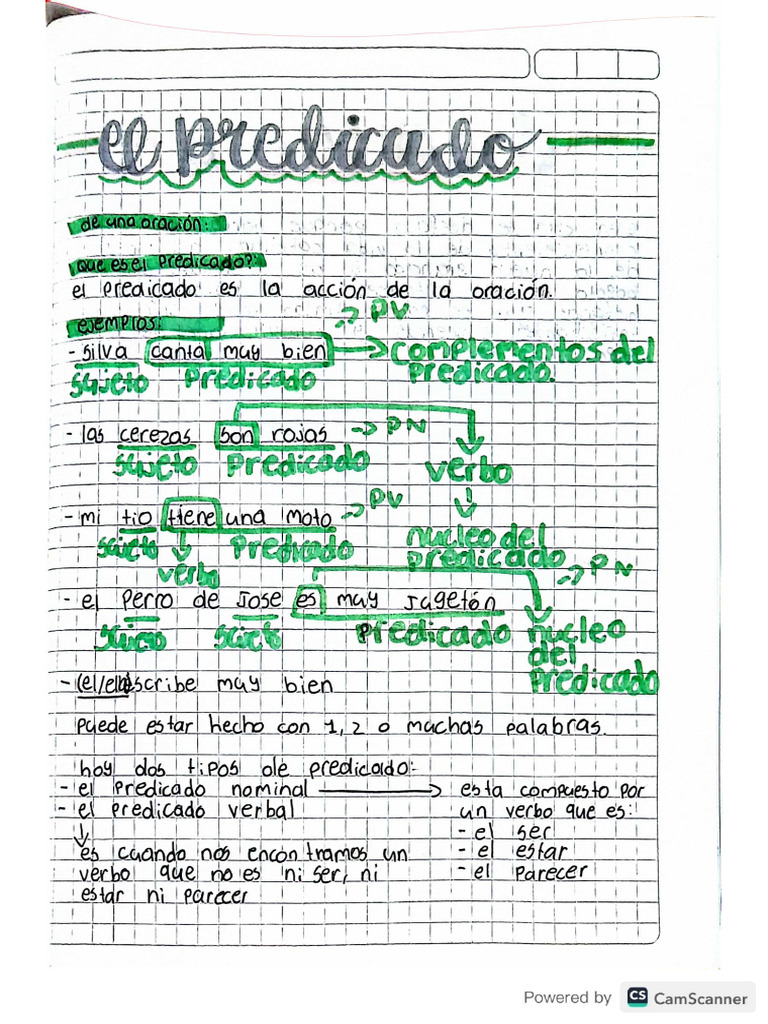 el predicado
de una oración:
que es el predicado?
el predicado es la acción de la oración.
ejemplos:
-> PV
- silva canta muy bien -> complementos del
sujeto predicado predicado.
- las cerezas son rojas -> PN
sujeto predicado verbo
- mi tio tiene una moto -> PV
sujeto predicado nucleo del
verbo predicado
-> PN
- el perro de Jose es muy jugetón
sujeto sujeto predicado nucleo
del
predicado
- (el/ella) escribe muy bien
puede estar hecho con 1, 2 o muchas palabras.
hoy dos tipos de predicado:
- el predicado nominal -> esta compuesto por
- el predicado verbal un verbo que es:
- el ser
es cuando nos encontramos un - el estar
verbo que no es ni ser, ni - el parecer
estar ni parecer
Powered by CS CamScanner